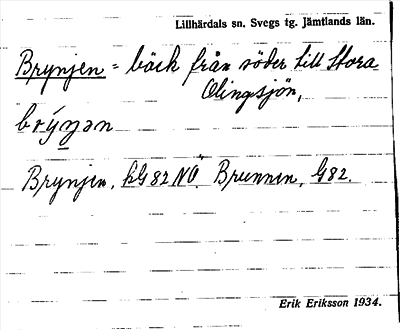 Lillhärdals sn. Svegs tg. Jämtlands län.
Brynjen = bäck från söder till Stora
Olingsjön,
brýnən
Brynjen, kG82NÖ. Brunnen, G82.
Erik Eriksson 1934.